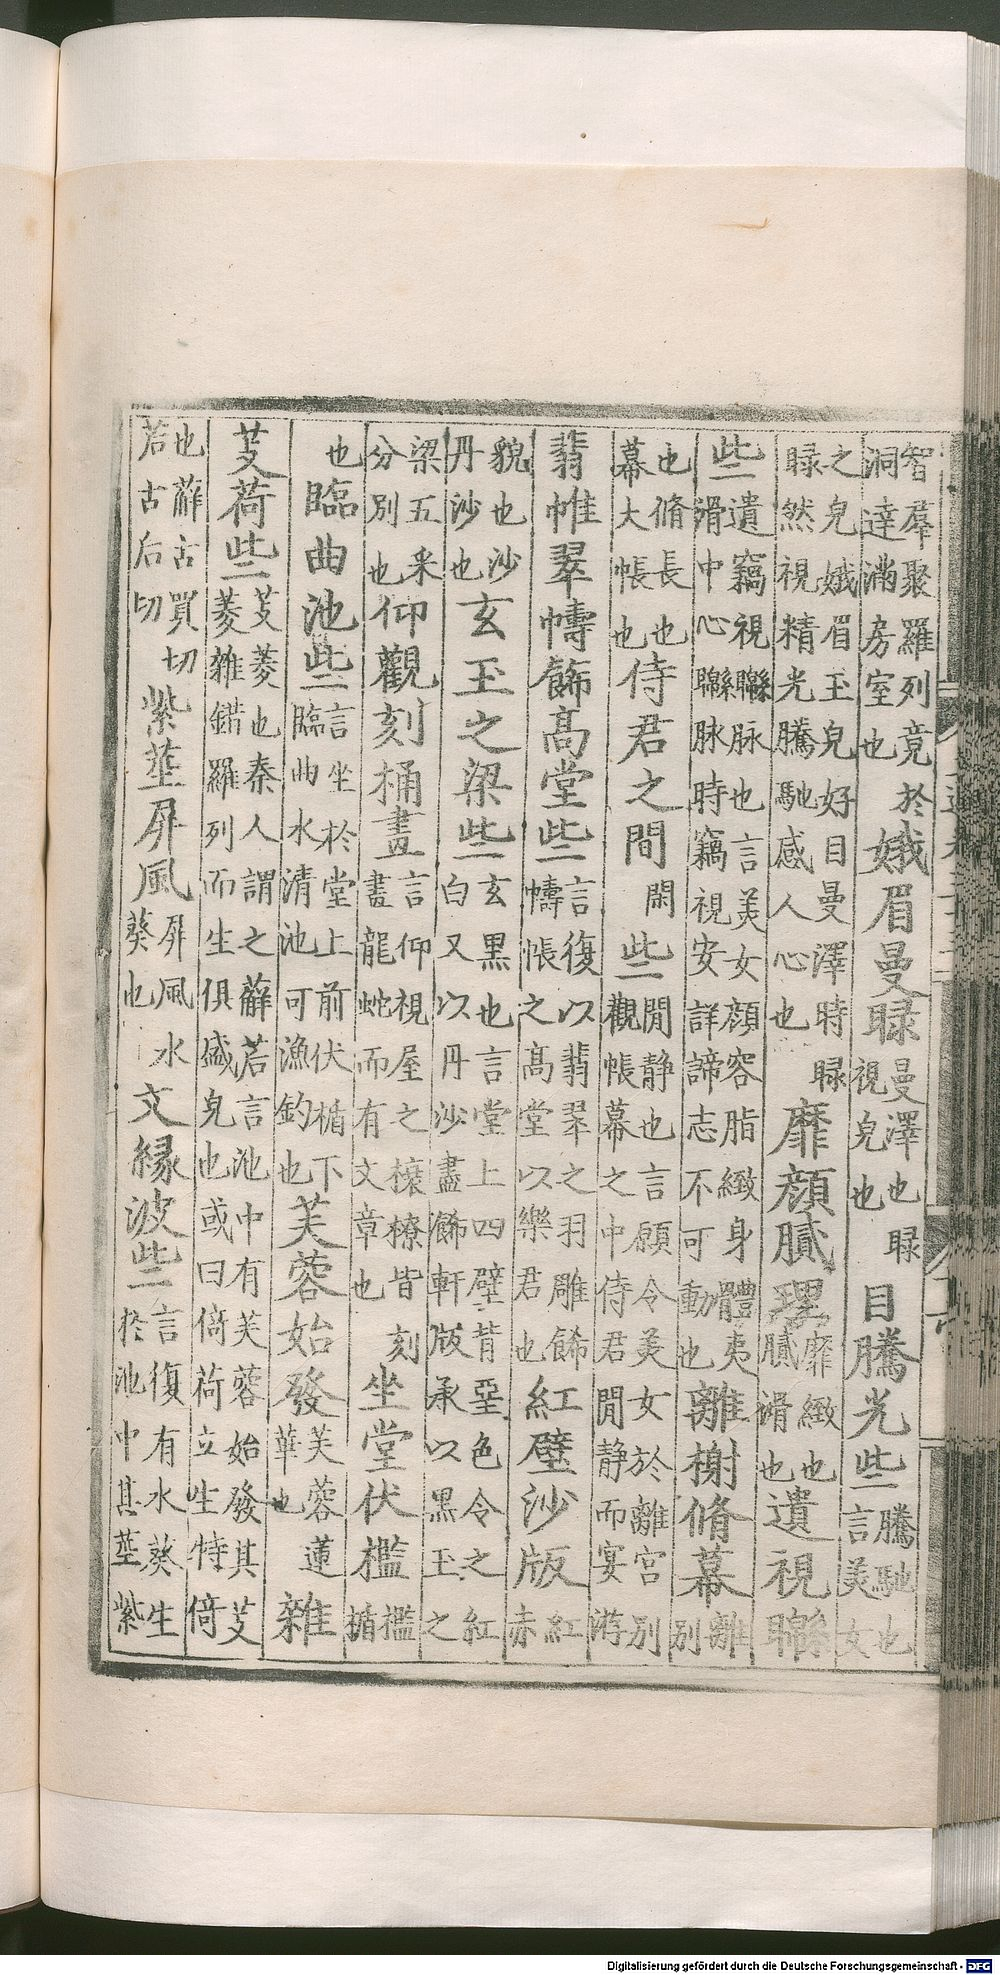 智羣聚羅列竟於洞達滿房室也娥眉曼睩曼澤也睩視皃也目騰光些騰馳也言美女
之皃娥眉玉皃好目曼澤時睩睩然視精光騰馳感人心也靡顏膩理靡緻也膩滑也遺視聯
些遺竊視聯脉也言美女顏容脂緻身體夷滑中心聯脉時竊視安詳諦志不可動也離榭脩幕離別
也脩長也幕大帳也侍君之間閑些閒静也言願令美女於離宮別觀帳幕之中侍君閒静而宴游
翡帷翠幬飾高堂些言復以翡翠之羽雕飾幬帳之高堂以樂君也紅壁沙版紅赤
貌也沙丹沙也玄玉之梁些玄黑也言堂上四壁皆堊色令之紅白又以丹沙盡飾軒版承以黑玉之
梁五采分別也仰觀刻桷畫言仰視屋之榱橑皆刻畫龍蛇而有文章也坐堂伏檻檻楯
也臨曲池些言坐於堂上前伏楯下臨曲水清池可漁釣也芙蓉始發芙蓉蓮華也雜
芰荷些芰菱也秦人謂之薢茩言池中有芙蓉始發其芰菱雜錯羅列而生俱盛皃也或曰倚荷立生特倚
也薢古買切茩古后切紫莖屏風屏風水葵也文緣波些言復有水葵生於池中其莖紫
Digitalisierung gefördert durch die Deutsche Forschungsgemeinschaft - DFG